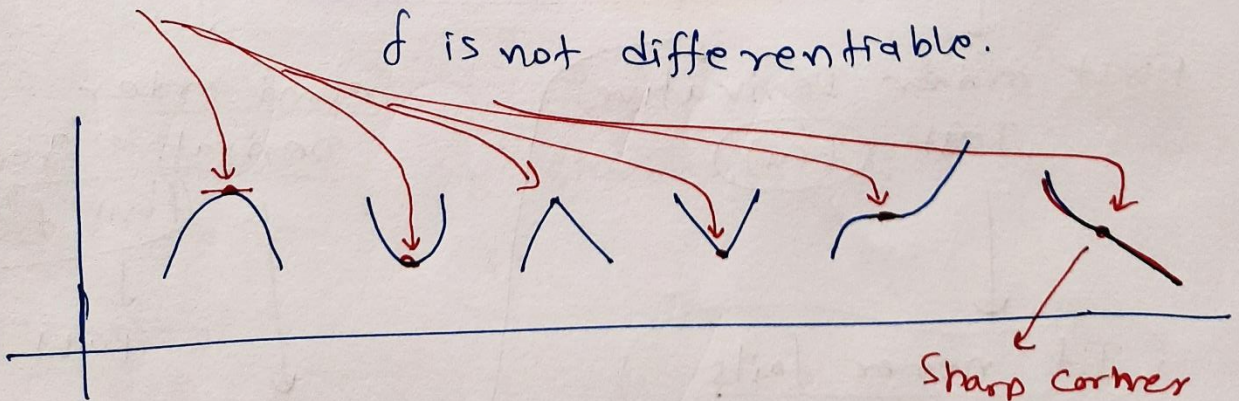 f is not differentiable.
Sharp corner